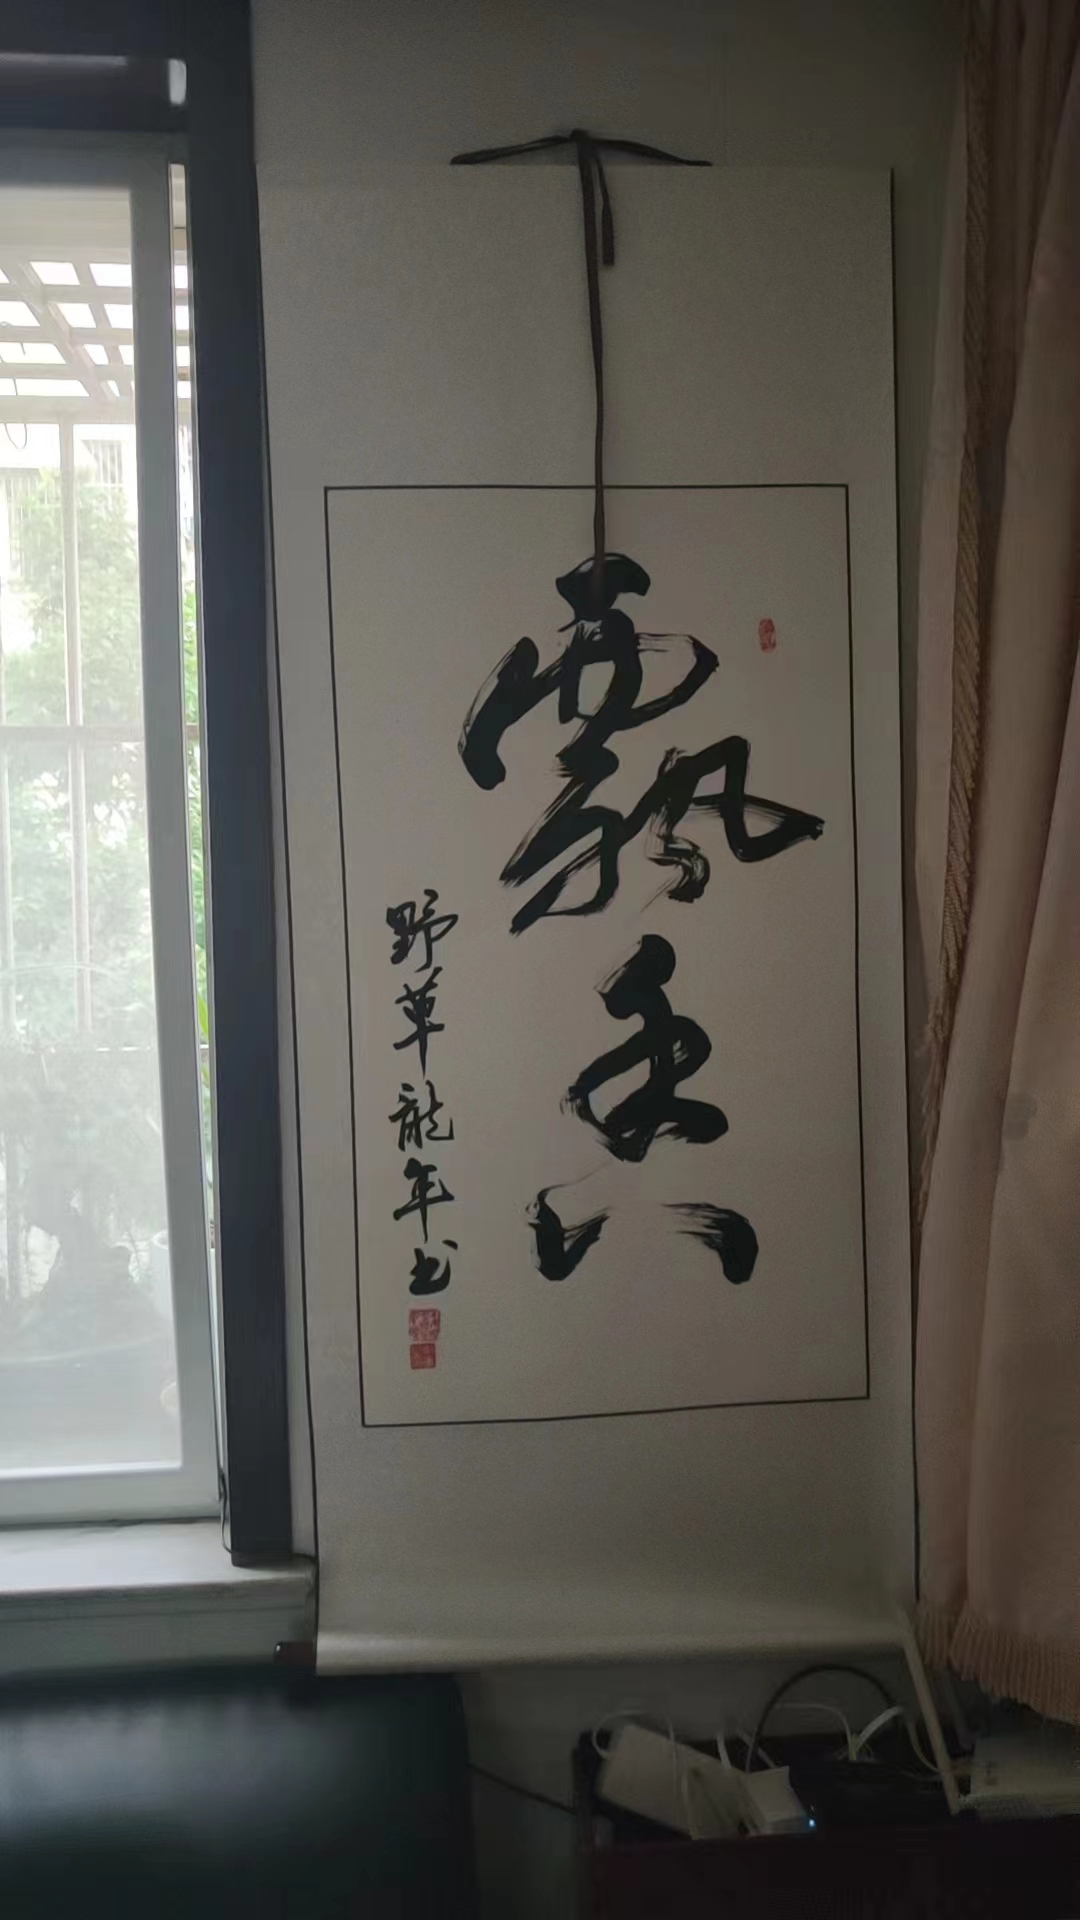 飄香
野草龍年书